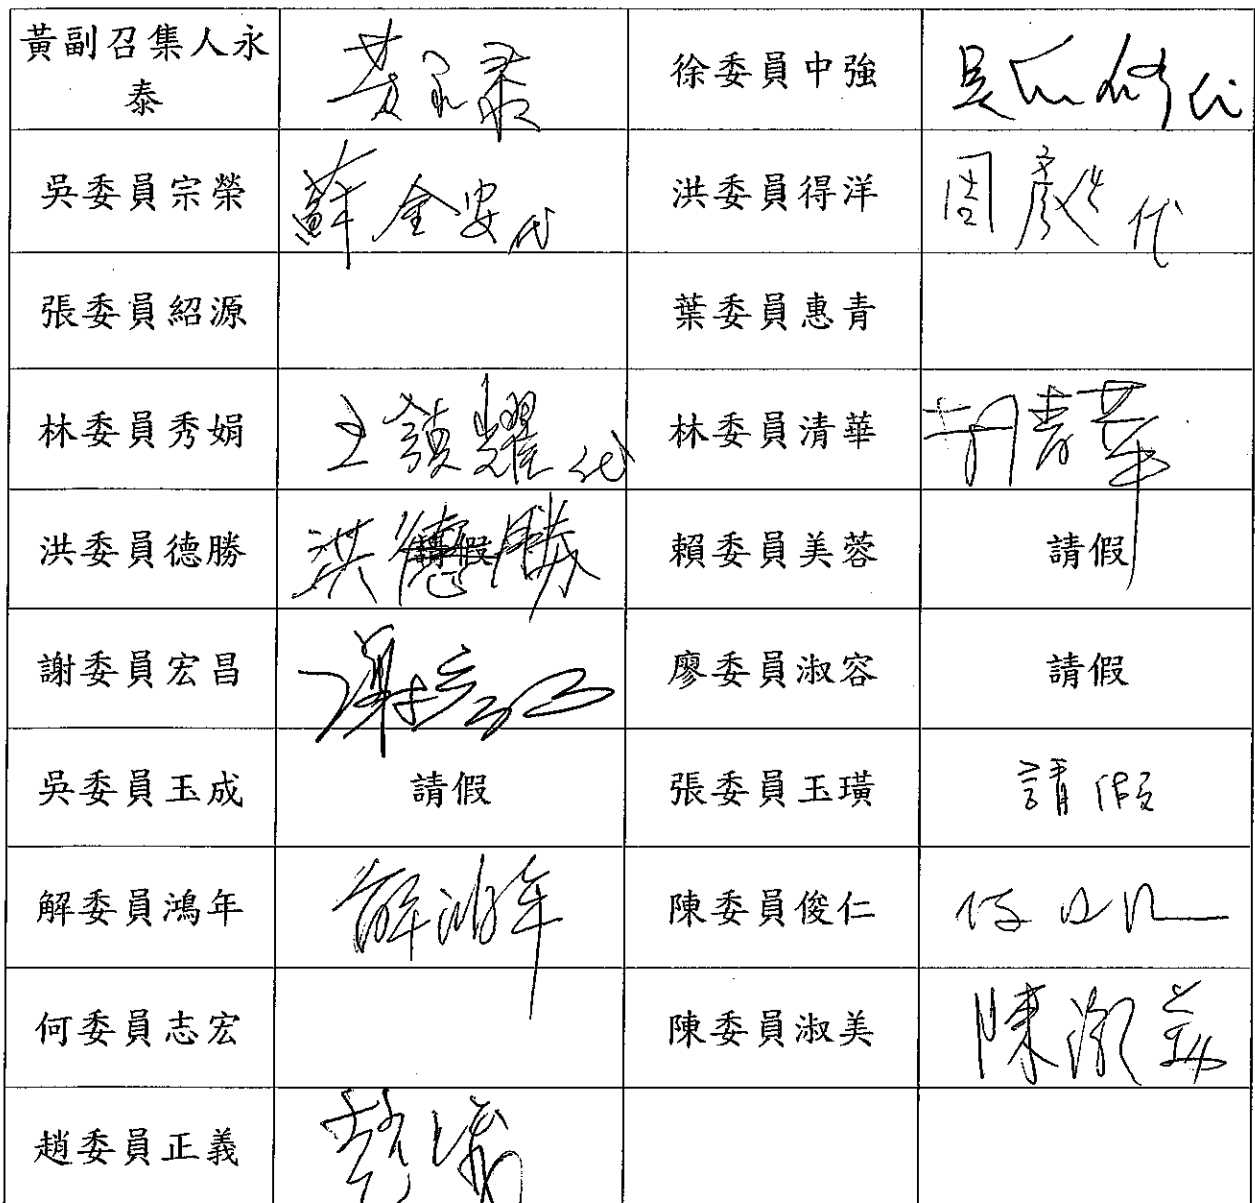 黃副召集人永
泰
徐委員中強
吳 代
吳委員宗榮
蘇金安代
洪委員得洋
周彥 代
張委員紹源
葉委員惠青
林委員秀娟
王 耀代
林委員清華
洪委員德勝
洪德勝
請假
賴委員美蓉
請假
謝委員宏昌
謝宏昌
廖委員淑容
請假
吳委員玉成
請假
張委員玉璜
請假
解委員鴻年
解鴻年
陳委員俊仁
何委員志宏
陳委員淑美
陳淑美
趙委員正義